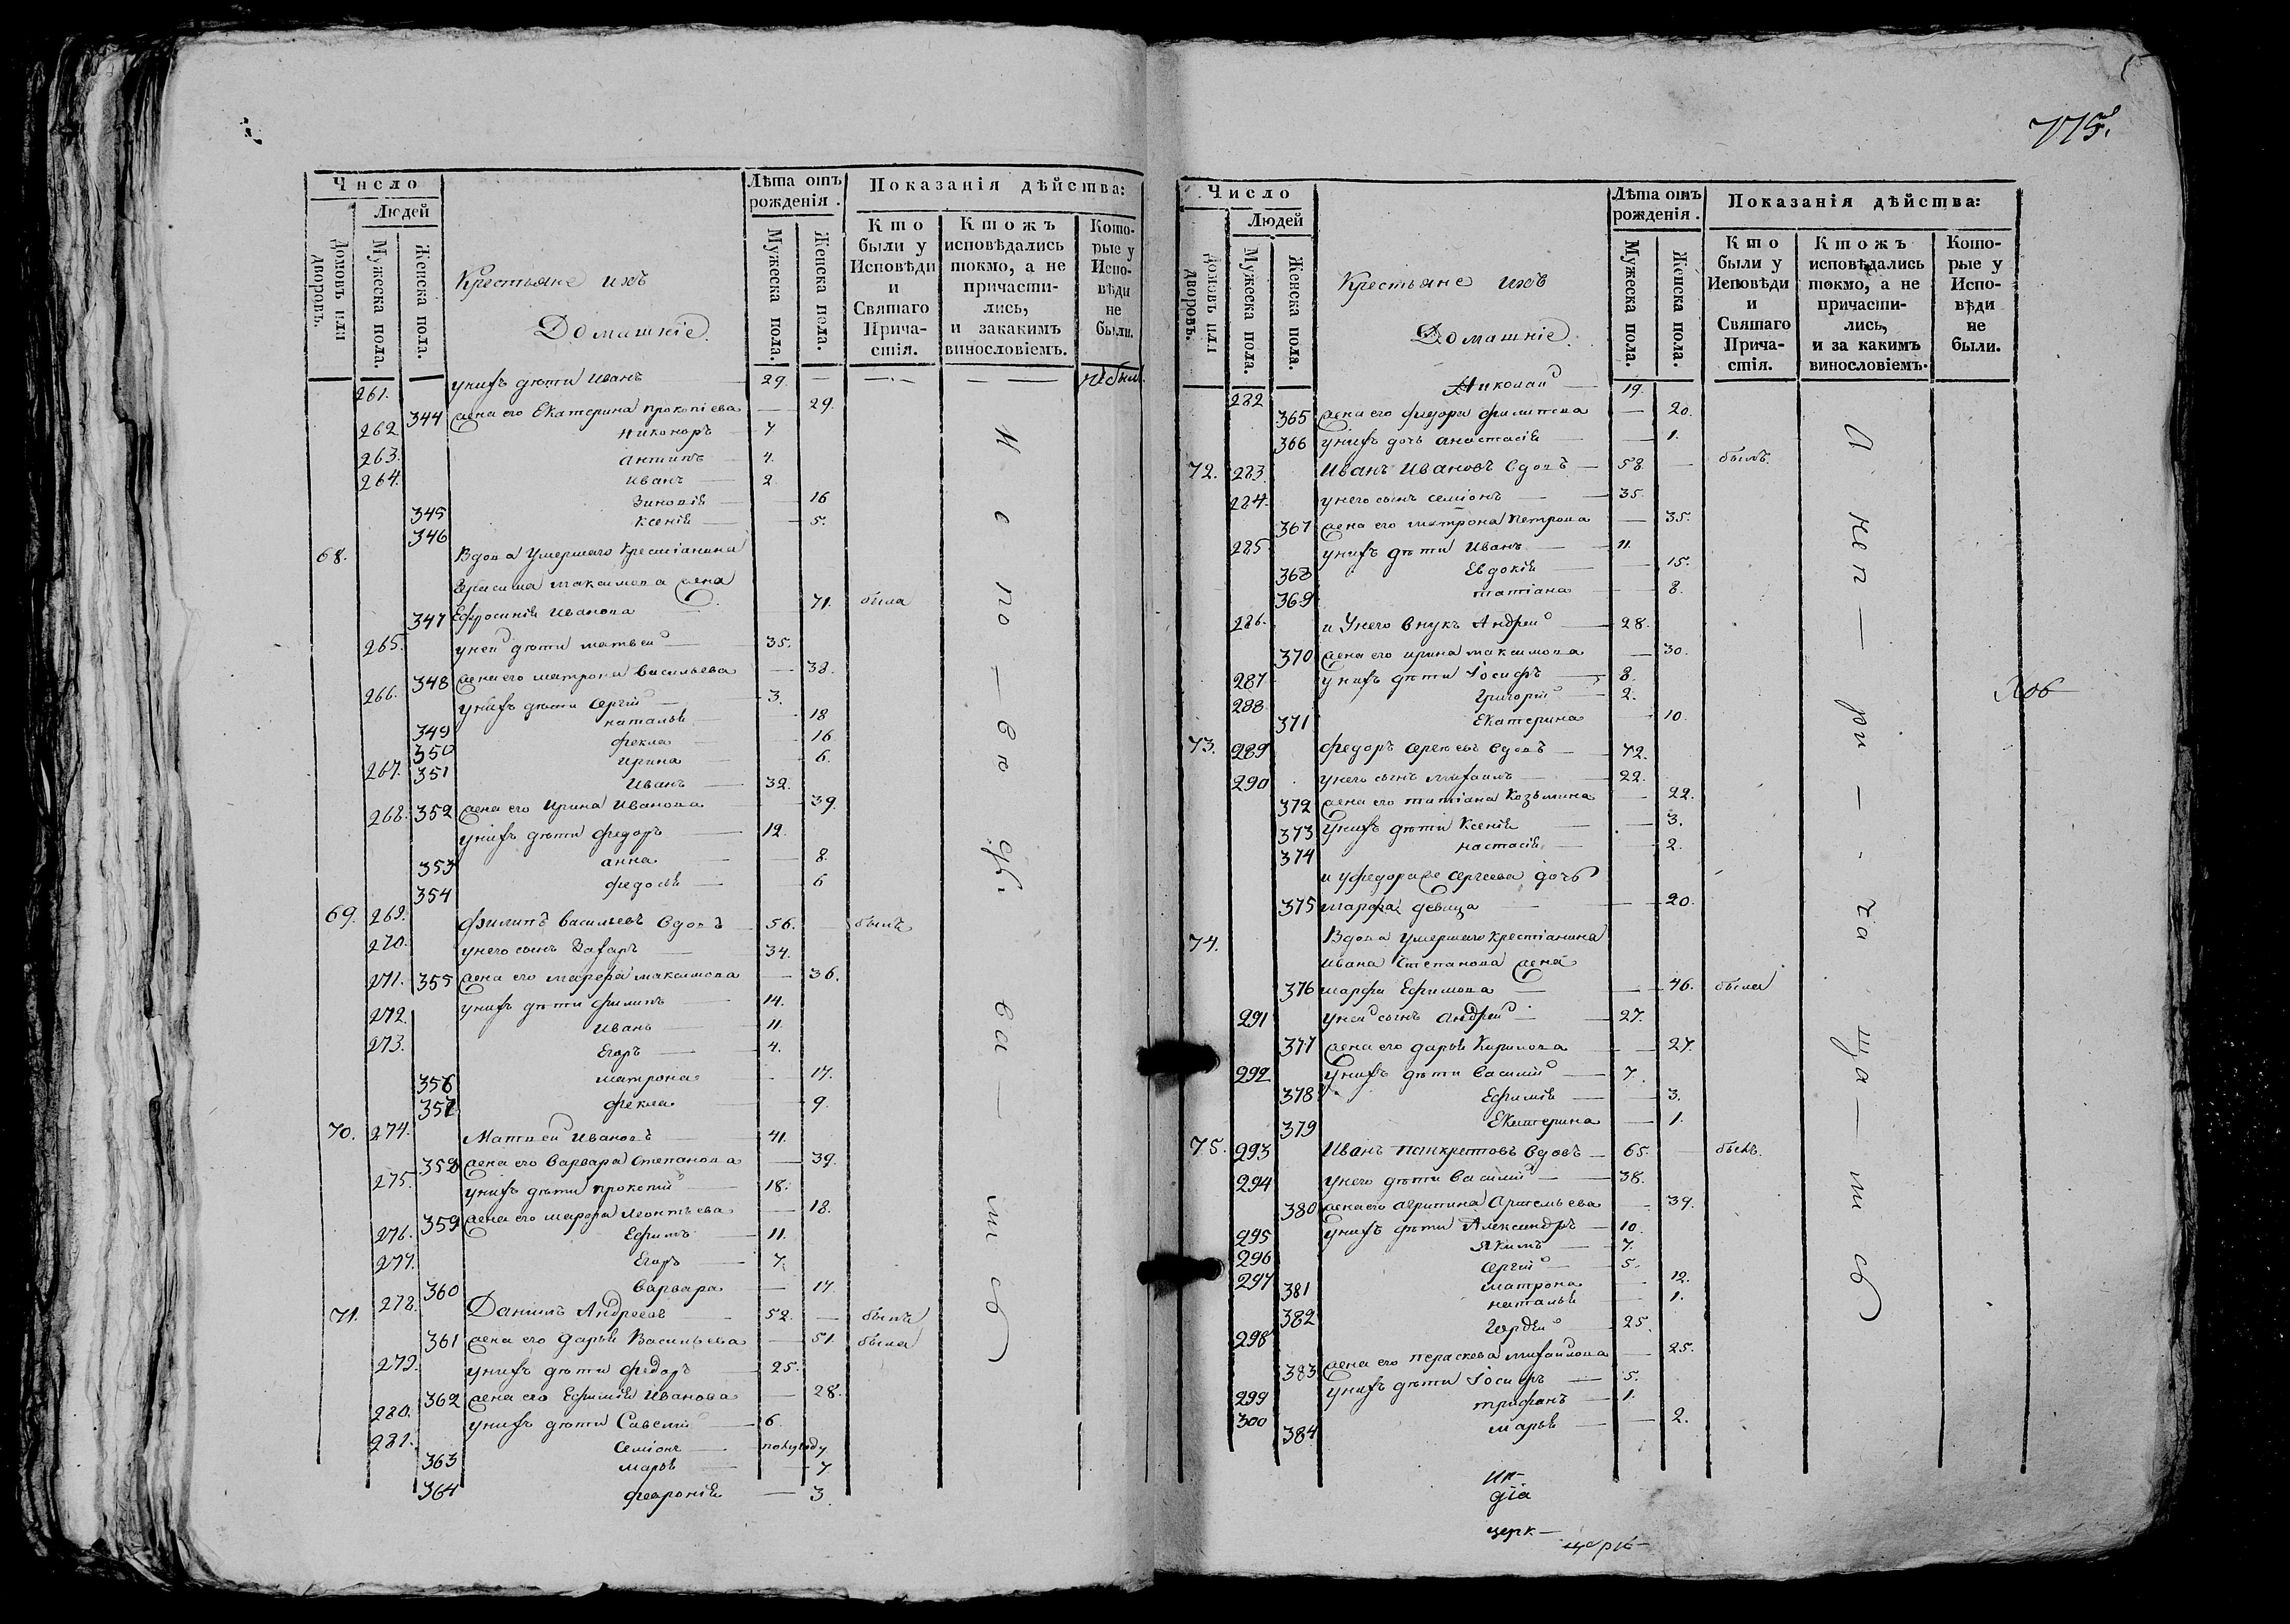 775.
Число
Людей
Домовъ или дворовъ.
Мужеска пола.
Женска пола.
Крестьяне ихъ
Домашніе.
Лѣта отъ рожденія.
Мужеска пола.
Женска пола.
Показанія дѣйства:
Кто были у Исповѣди и Святаго Причастія.
Ктожъ исповѣдались токмо, а не причастились, и закакимъ винословіемъ.
Которые у Исповѣди не были.
261. унихъ дѣти Иванъ 29.
344 жена его Екатерина прокопіева 29.
262 никоноръ 7
263. антипъ 4.
264. иванъ 2
345 Зиновія 16
346 ксенія 5.
68. Вдова умершаго крестіанина
максимова жена
347 Ефросинія Иванова 71. была
265. уней дѣти матвей 35.
348 жена его матрона васильева 38.
266. унихъ дѣти сергій 3.
349 наталья 18
350 фекла 16
351 ирина 6.
267. Иванъ 32.
352 жена его Ирина Иванова 39.
268. унихъ дѣти федоръ 12.
353 анна 8.
354 федосья 6
69. 269. филипъ васильевъ вдовъ 56. былъ
270. унего сынъ Захаръ 34.
355 жена его марфа максимова 36.
271. унихъ дѣти филипъ 14.
272. иванъ 11.
273. Егоръ 4.
356 матрона 17.
357 фекла 9.
70. 274. Матвей Ивановъ 41.
358 жена его варвара степанова 39.
275. унихъ дѣти прокопій 18.
359 жена его марфа леонтьева 18.
276. Ефимъ 11.
277. Егоръ 7.
360 варвара 17.
71. 278. Данилъ Андреевъ 52. былъ
361 жена его дарья Васильева 51. была
279. унихъ дѣти федоръ 25.
362 жена его Ефимія Иванова 28.
280. унихъ дѣти Савелій 6.
281. семіонъ полугоду
363 марья 7
364 февронія 3
Число
Людей
Домовъ или дворовъ.
Мужеска пола.
Женска пола.
Крестьяне ихъ
Домашніе.
Лѣта отъ рожденія.
Мужеска пола.
Женска пола.
Показанія дѣйства:
Кто были у Исповѣди и Святаго Причастія.
Ктожъ исповѣдались токмо, а не причастились, и за какимъ винословіемъ.
Которые у Исповѣди не были.
282 Николай 19.
365 жена его федора филипова 20.
366 унихъ дочь анастасія 1.
72. 283. Иванъ Ивановъ вдовъ 58. былъ
284. унего сынъ семіонъ 35.
367 жена его матрона петрова 35.
285. унихъ дѣти Иванъ 11.
368 Евдокія 15.
369 татіана 8.
286. и унего внукъ Андрей 28.
370 жена его ирина максимова 30.
287 унихъ дѣти Іосифъ 8.
288 григорій 2.
371 Екатерина 10.
73. 289 федоръ сергѣевъ вдовъ 72.
290 унего сынъ михаилъ 22.
372 жена его татіана козьмина 22.
373 унихъ дѣти Ксенія 3.
374 настасія 2.
и уфедора же сергеева дочь
375 марфа девица 20.
74. Вдова умершаго крестіанина
ивана степанова жена
376 марфа Ефимова 46. была
291 уней сынъ андрей 27.
377 жена его дарья Кирилова 27.
292 унихъ дѣти василій 7.
378 Ефимія 3.
379 Екатерина 1.
75. 293 Иванъ панкратовъ вдовъ 65. былъ
294 унего дѣти василій 38.
380 жена его агрипина Артемьева 39.
295 унихъ дѣти Александръ 10.
296 Якимъ 7.
297 сергій 5.
381 матрона 12.
382 наталья 1.
298 гордѣй 25.
383 жена его параскева михайлова 25.
299 унихъ дѣти Іосифъ 5.
300 трифонъ 1.
384 марья 2.
церк-